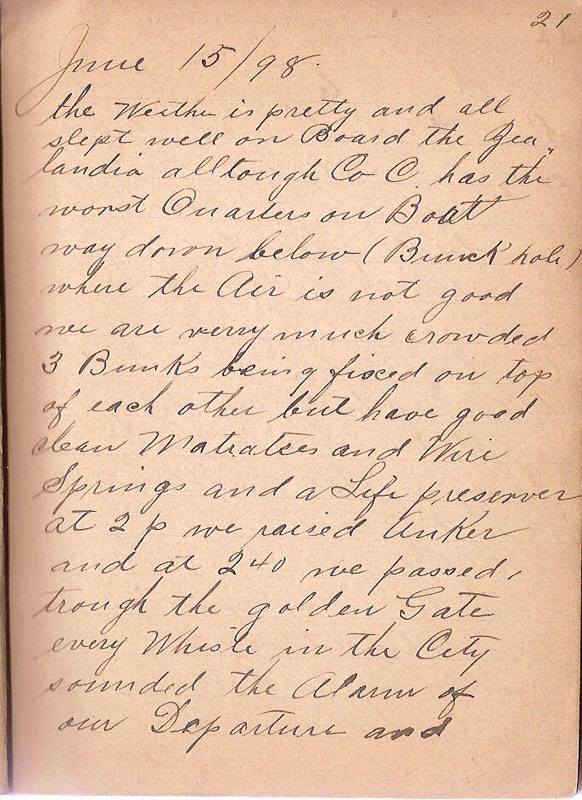 21
June 15/98.
the Weathe is pretty and all
slept well on Board the Zea„
landia alltough Co C. has the
worst Quarters on Boatt
way down below (Bunck hole)
where the Air is not good
we are verry much crowded
3 Bunks being fixed on top
of each other but have good
clean Matratses and Wire
Springs and a Life preserver
at 2 p we raised Anker
and at 240 we passed,
trough the golden Gate
every Whisle in the City
sounded the Alarm of
our Departure and